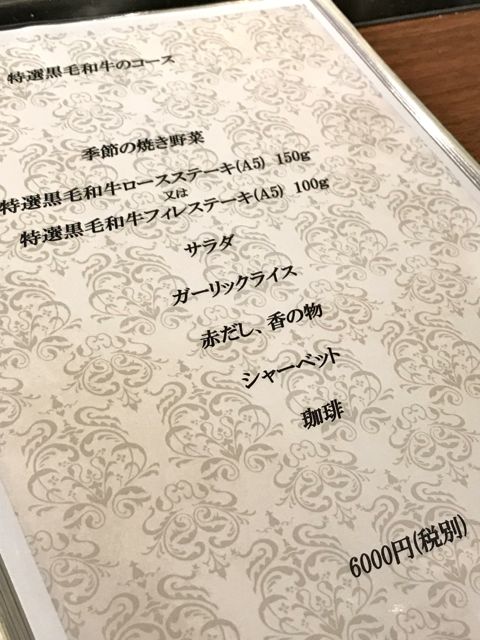 特選黒毛和牛のコース
季節の焼き野菜
特選黒毛和牛ロースステーキ(A5) 150g
又は
特選黒毛和牛フィレステーキ(A5) 100g
サラダ
ガーリックライス
赤だし、香の物
シャーベット
珈琲
6000円(税別)